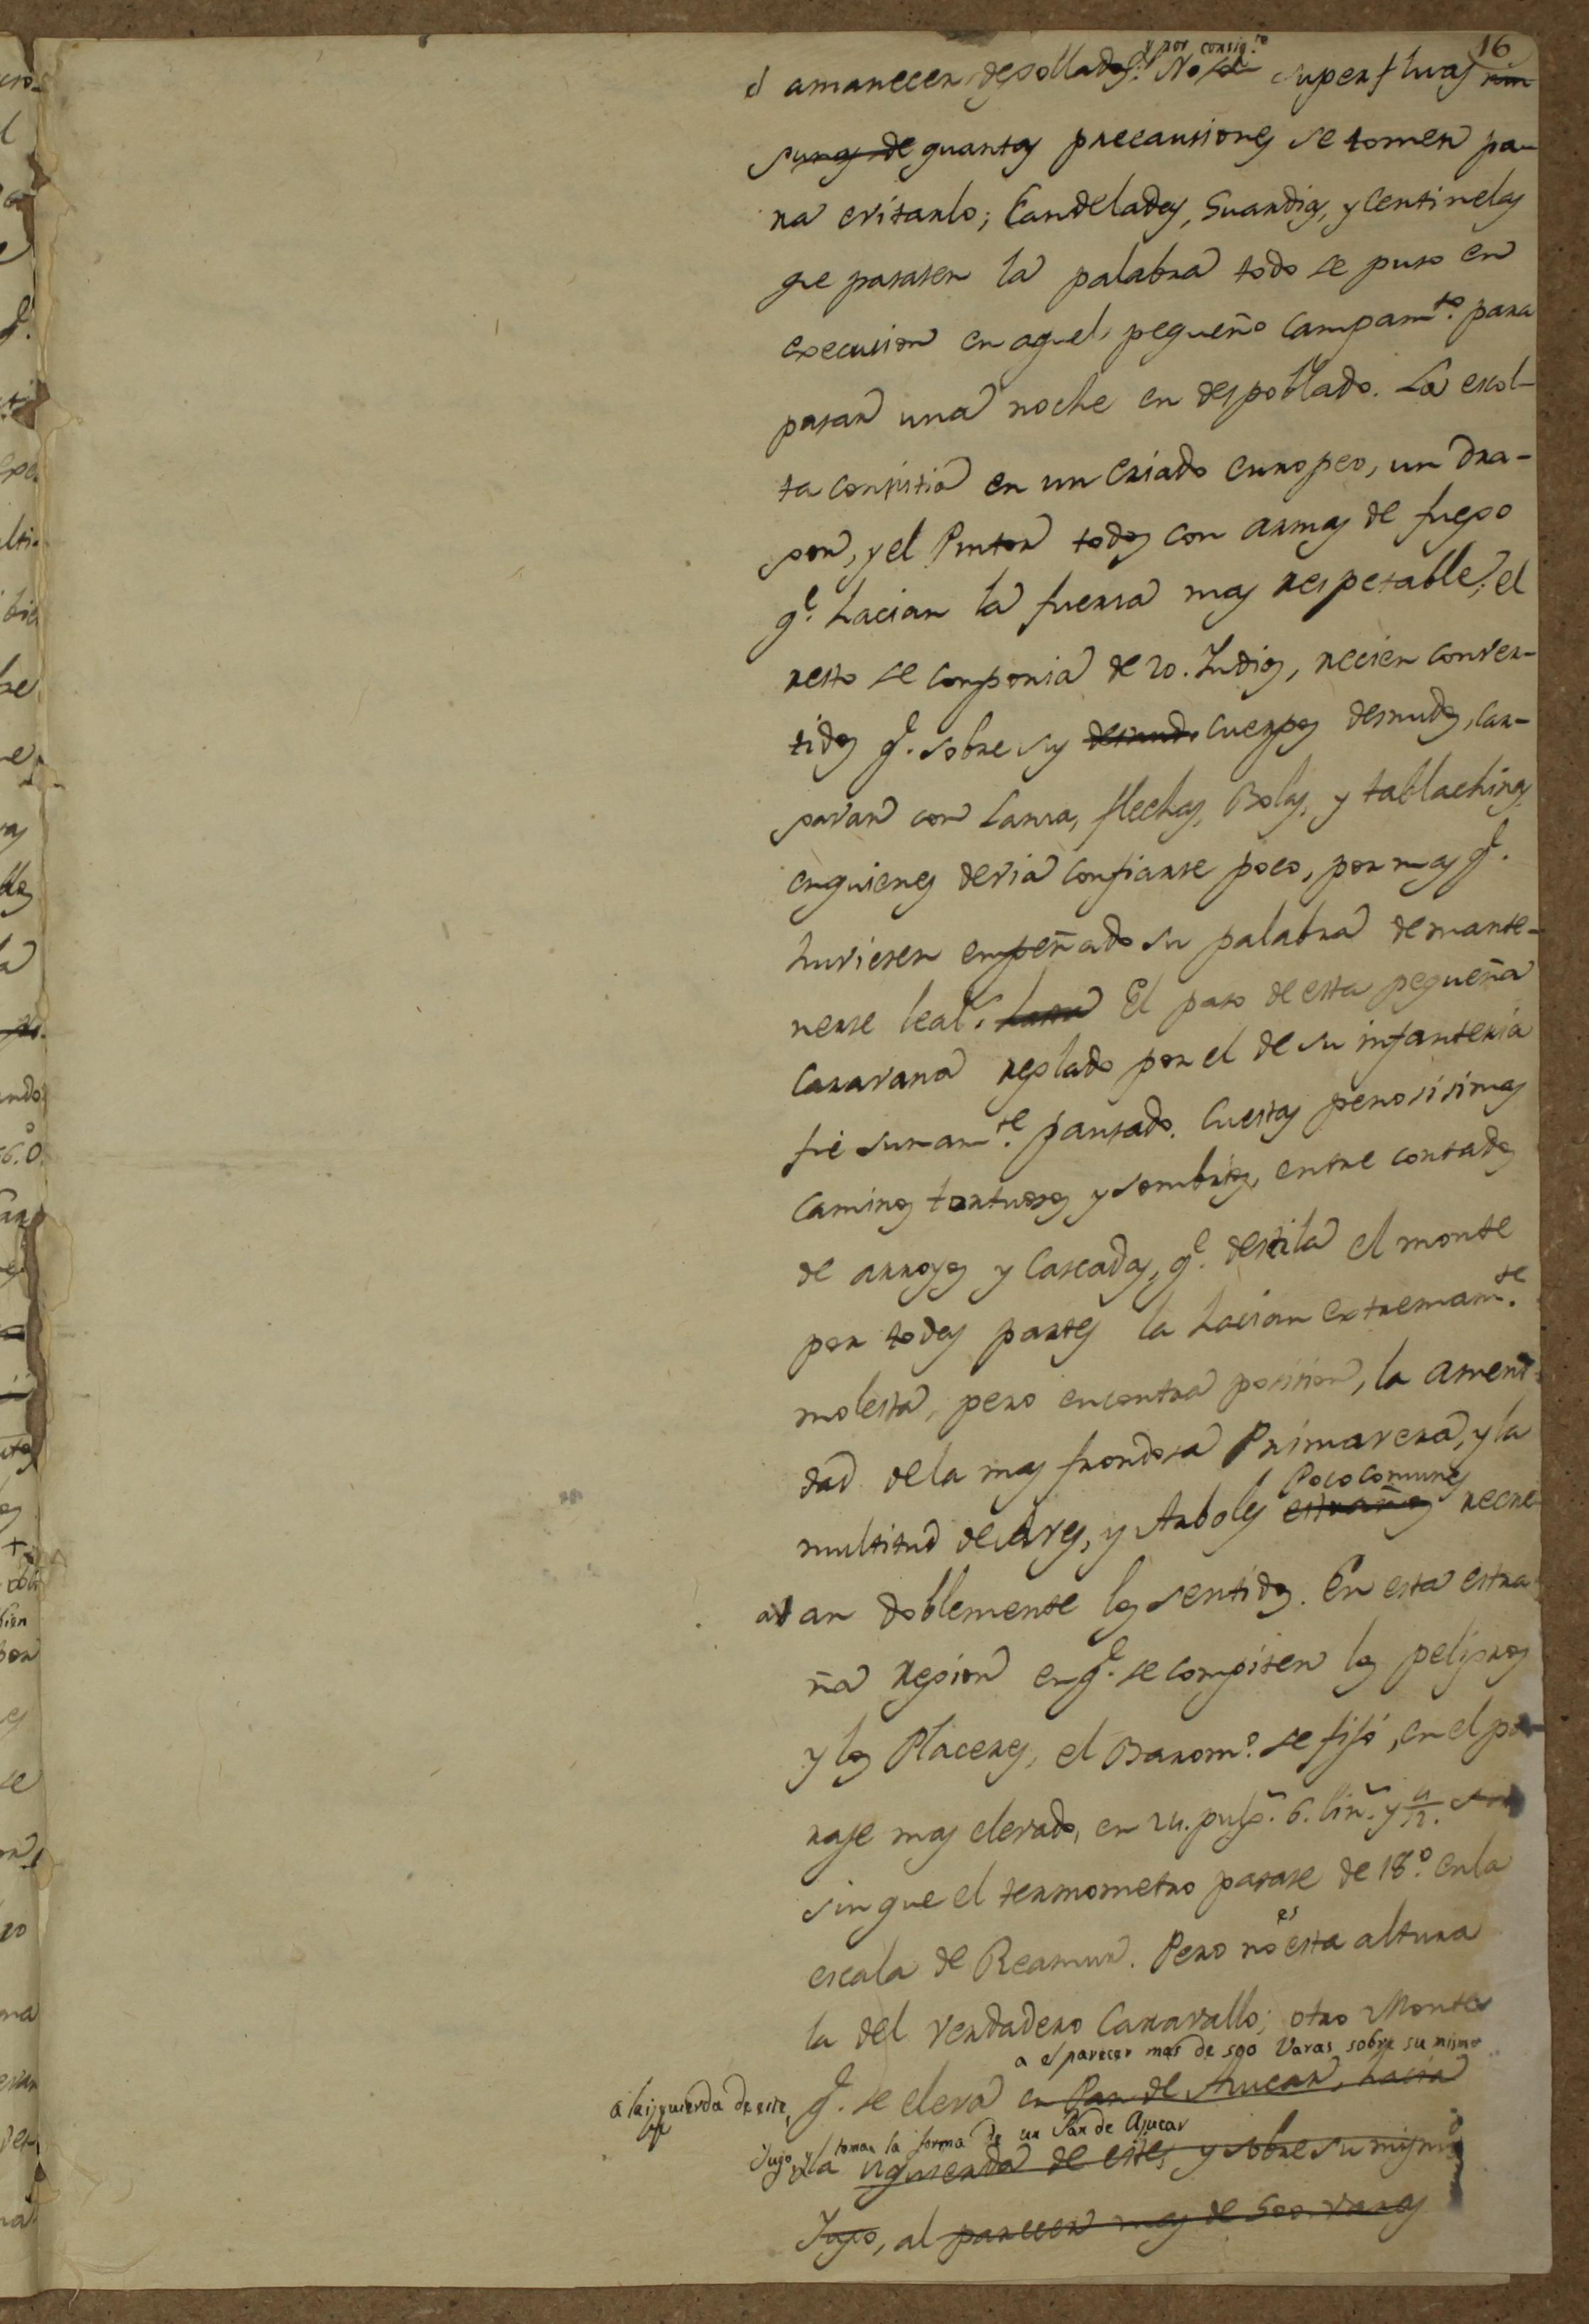 16
y por consig.te
á amanecer degollados. No son superfluas nin
gunas de quantas precausiones se tomen pa-
ra evitarlo; Candeladas, Guardias, y Centinelas
que pasasen la palabra todo se puso en
execusion en aquel pequeño Campam.to para
pasar una noche en despoblado. La escol-
ta consistia en un Criado europeo, un Dra-
gon, y el Pintor todos con armas de fuego
q.e hacian la fuersa mas respetable; el
resto se componia de 20. Indios, recien conver-
tidos q.e sobre sus desnudo cuerpos desnudos, car-
gavan con Lansa, flechas, Bolas, y tablachinas,
enquienes devia confiarse poco, por mas q.e
huviesen empeñado su palabra de mante-
nerse leal.s El paso de esta pequeña
Caravana reglado por el de su infanteria
fue sumam.te pausado. Cuestas penosisimas
Caminos tortuosos y sombrios, entre cortados
de arroyos y Cascadas, q.e destila el monte
por todas partes la hacian extremam.te
molesta, pero encontra posision, la ameni-
dad de la mas frondosa Primavera, y la
Poco comunes
multitud de Aves, y Arboles estraños recre-
avan doblemente los sentidos. En esta estra
ña region en q.e se compiten los peligros
y los Placeres, el Barom.o se fijó, en el pa-
raje mas elevado, en 24. pulg.s 6. lin.s y 4/12.
sin que el termometro pasase de 18.o en la
escala de Reamur. Pero no es esta altura
la del verdadero Caravallo; otro Monte
a el parecer mas de 500 Varas sobre su mismo
á la izquierda de este, q.e se eleva en Pan de Asucar, hacia
Yugo, y toman la forma de un Pan de Azucar
la isquierda de este, y sobre su mismo
Yugo, al parecer mas de 500. varas